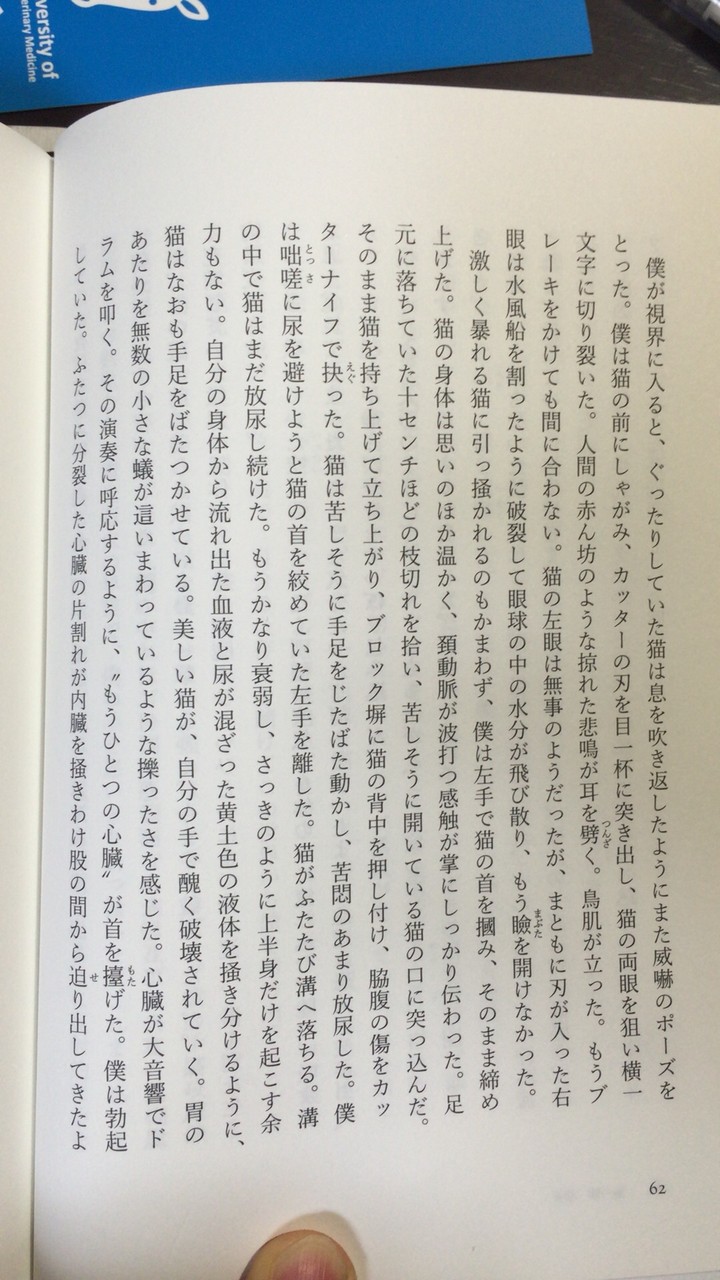 僕が視界に入ると、ぐったりしていた猫は息を吹き返したようにまた威嚇のポーズを
とった。僕は猫の前にしゃがみ、カッターの刃を目一杯に突き出し、猫の両眼を狙い横一
文字に切り裂いた。人間の赤ん坊のような掠れた悲鳴が耳を劈く。鳥肌が立った。もうブ
レーキをかけても間に合わない。猫の左眼は無事のようだったが、まともに刃が入った右
眼は水風船を割ったように破裂して眼球の中の水分が飛び散り、もう瞼を開けなかった。
激しく暴れる猫に引っ掻かれるのもかまわず、僕は左手で猫の首を摑み、そのまま締め
上げた。猫の身体は思いのほか温かく、頚動脈が波打つ感触が掌にしっかり伝わった。足
元に落ちていた十センチほどの枝切れを拾い、苦しそうに開いている猫の口に突っ込んだ。
そのまま猫を持ち上げて立ち上がり、ブロック塀に猫の背中を押し付け、脇腹の傷をカッ
ターナイフで抉った。猫は苦しそうに手足をじたばた動かし、苦悶のあまり放尿した。僕
は咄嗟に尿を避けようと猫の首を絞めていた左手を離した。猫がふたたび溝へ落ちる。溝
の中で猫はまだ放尿し続けた。もうかなり衰弱し、さっきのように上半身だけを起こす余
力もない。自分の身体から流れ出た血液と尿が混ざった黄土色の液体を掻き分けるように、
猫はなおも手足をばたつかせている。美しい猫が、自分の手で醜く破壊されていく。胃の
あたりを無数の小さな蟻が這いまわっているような擽ったさを感じた。心臓が大音響でド
ラムを叩く。その演奏に呼応するように、〝もうひとつの心臓〟が首を擡げた。僕は勃起
していた。ふたつに分裂した心臓の片割れが内臓を掻きわけ股の間から迫り出してきたよ
62